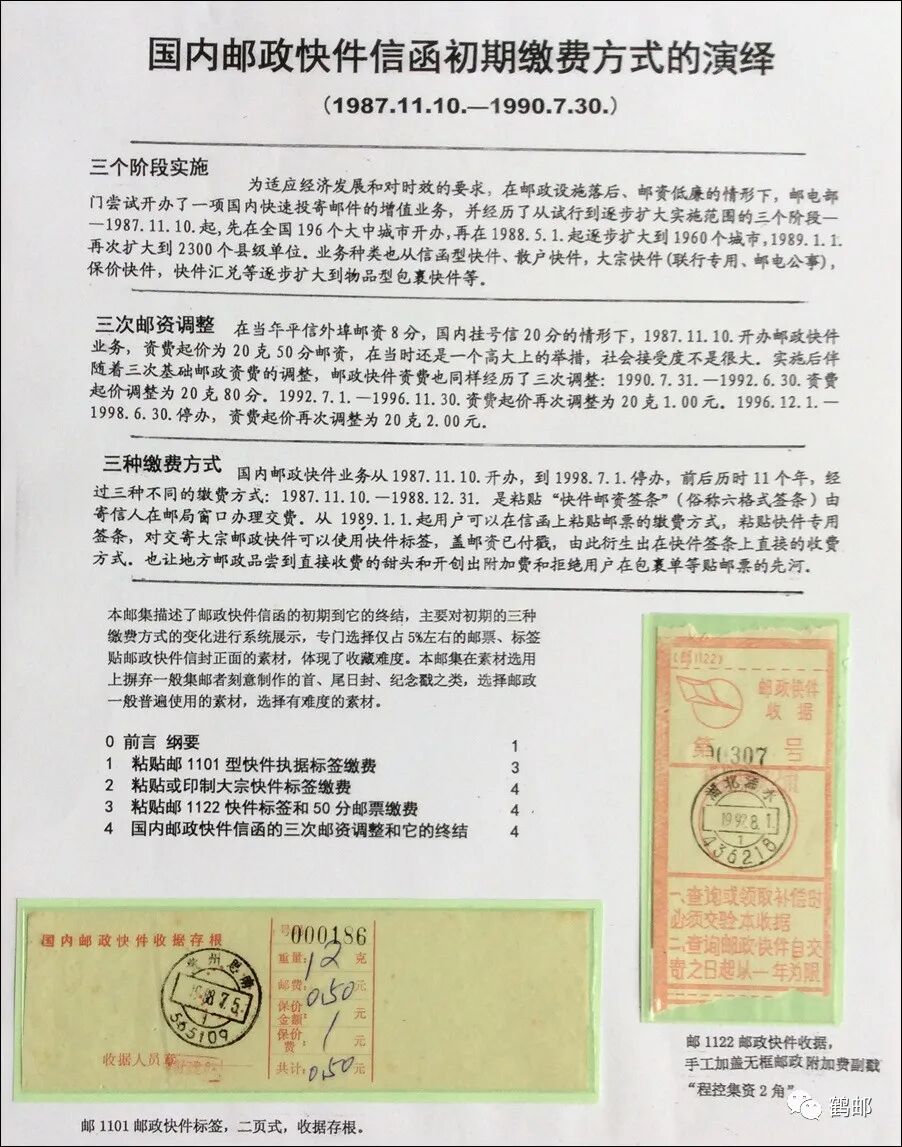 国内邮政快件信函初期缴费方式的演绎
（1987.11.10.—1990.7.30.）
三个阶段实施
为适应经济发展和对时效的要求，在邮政设施落后、邮资低廉的情形下，邮电部
门尝试开办了一项国内快速投寄邮件的增值业务，并经历了从试行到逐步扩大实施范围的三个阶段—
—1987.11.10.起,先在全国196个大中城市开办,再在1988.5.1.起逐步扩大到1960个城市,1989.1.1.
再次扩大到2300个县级单位。业务种类也从信函型快件、散户快件，大宗快件(联行专用、邮电公事),
保价快件，快件汇兑等逐步扩大到物品型包裹快件等。
三次邮资调整
在当年平信外埠邮资8分，国内挂号信20分的情形下，1987.11.10.开办邮政快件
业务，资费起价为20克50分邮资，在当时还是一个高大上的举措，社会接受度不是很大。实施后伴
随着三次基础邮政资费的调整，邮政快件资费也同样经历了三次调整：1990.7.31.—1992.6.30.资费
起价调整为20克80分。1992.7.1.—1996.11.30.资费起价再次调整为20克1.00元。1996.12.1.—
1998.6.30.停办，资费起价再次调整为20克2.00元。
三种缴费方式
国内邮政快件业务从1987.11.10.开办，到1998.7.1.停办，前后历时11个年，经
过三种不同的缴费方式：1987.11.10.—1988.12.31. 是粘贴“快件邮资签条”（俗称六格式签条）由
寄信人在邮局窗口办理交费。从 1989.1.1.起用户可以在信函上粘贴邮票的缴费方式，粘贴快件专用
签条，对交寄大宗邮政快件可以使用快件标签，盖邮资已付戳，由此衍生出在快件签条上直接的收费
方式。也让地方邮政品尝到直接收费的甜头和开创出附加费和拒绝用户在包裹单等贴邮票的先河。
本邮集描述了邮政快件信函的初期到它的终结，主要对初期的三种
缴费方式的变化进行系统展示，专门选择仅占5%左右的邮票、标签
贴邮政快件信封正面的素材，体现了收藏难度。本邮集在素材选用
上摒弃一般集邮者刻意制作的首、尾日封、纪念戳之类，选择邮政
一般普遍使用的素材，选择有难度的素材。
0 前言 纲要 1
1 粘贴邮1101型快件执据标签缴费 3
2 粘贴或印制大宗快件标签缴费 4
3 粘贴邮1122快件标签和50分邮票缴费 4
4 国内邮政快件信函的三次邮资调整和它的终结 4
(邮1122)
邮政快件
收据
第 00307 号
湖北浠水
1992.8.1.
1
436218
一、查询或领取补偿时
必须交验本收据
二、查询邮政快件自交
寄之日起以一年为限
邮1122邮政快件收据，
手工加盖无框邮政附加费副戳
“程控集资2角”
国内邮政快件收据存根
贵州思南
1988.7.5.
1
565109
收据人员章
号 000186
重量：12 克
邮费：0.50 元
保价
金额：元
保价
费：1 元
共计：0.50 元
邮1101邮政快件标签，二页式，收据存根。
鹤邮